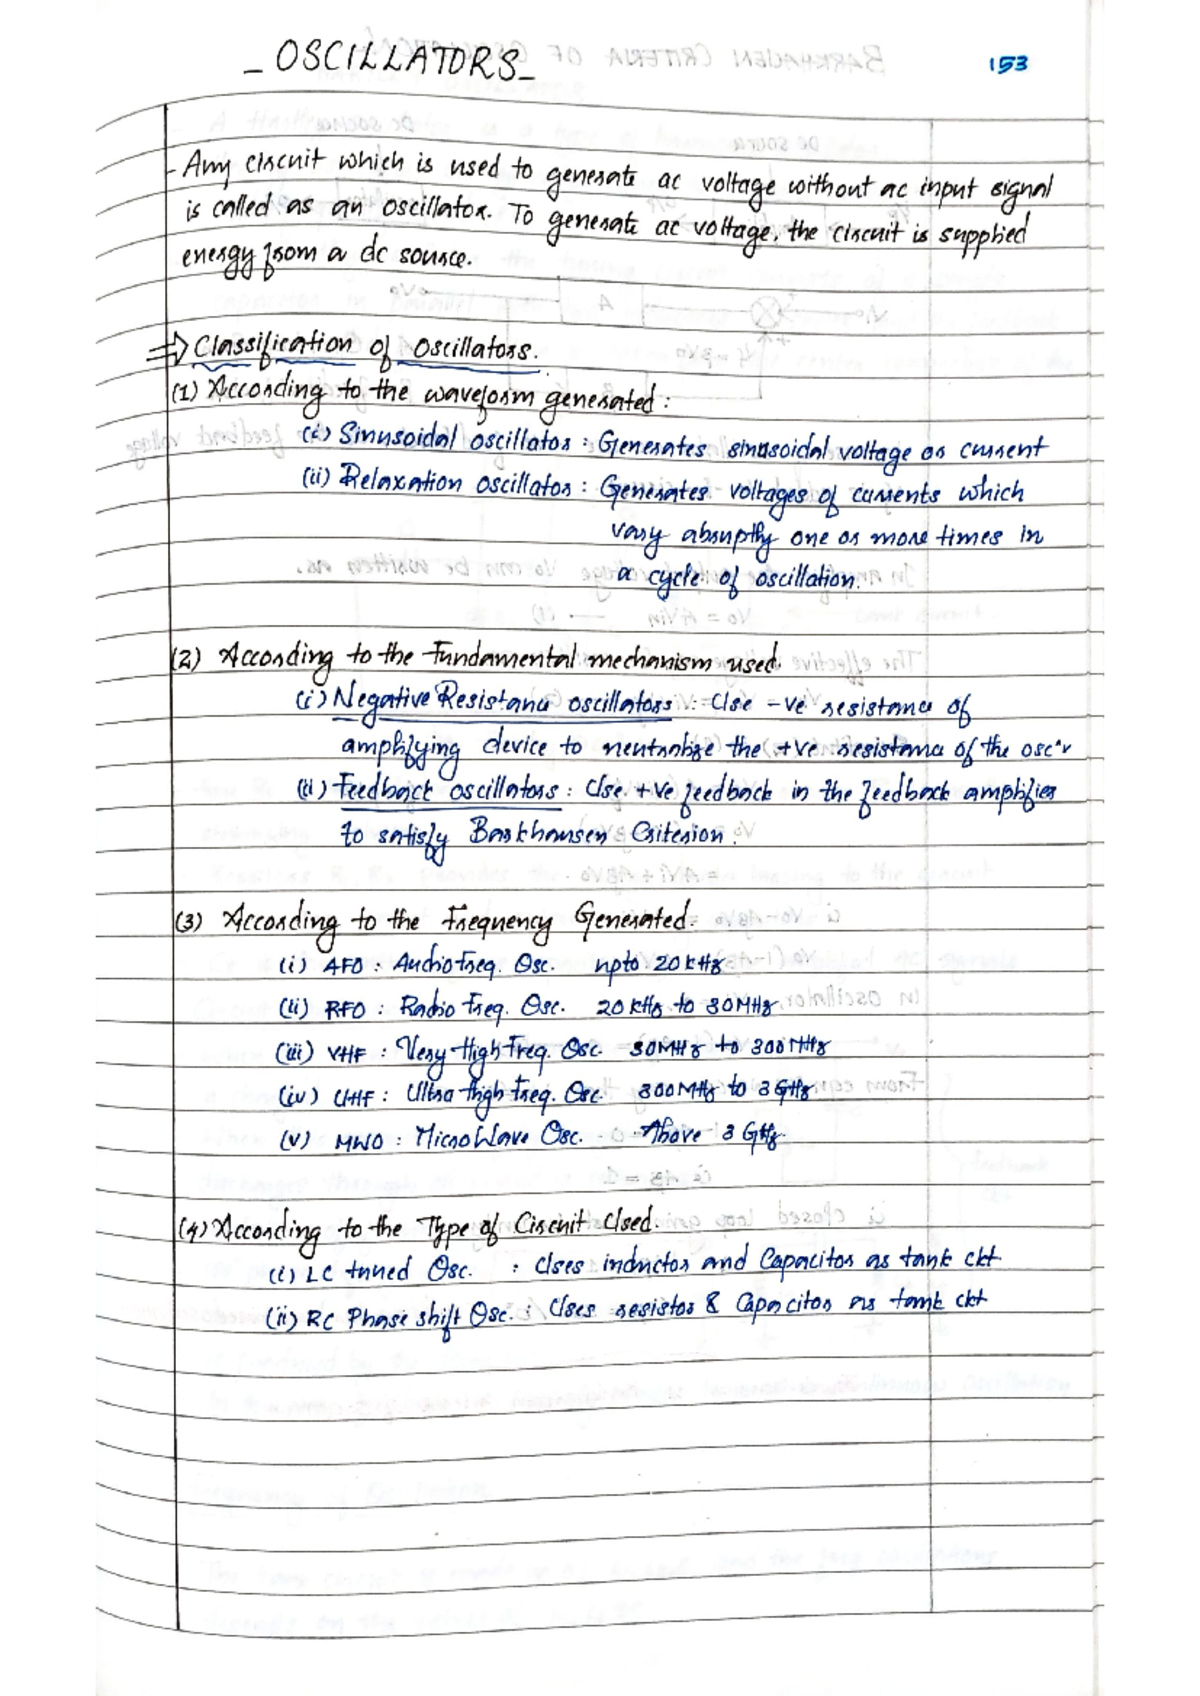 - OSCILLATORS -
153
- Any circuit which is used to generate ac voltage without ac input signal
is called as an oscillator. To generate ac voltage, the circuit is supplied
energy from a dc source.
⇒ Classification of Oscillators.
(1) According to the waveform generated :
(i) Sinusoidal oscillator : Generates sinusoidal voltage or current
(ii) Relaxation oscillator : Generates voltages of currents which
vary abruptly one or more times in
a cycle of oscillation.
(2) According to the Fundamental mechanism used.
(i) Negative Resistance oscillators : Use -ve resistance of
amplifying device to neutralize the +ve resistance of the osc'r
(ii) Feedback oscillators : Use +ve feedback in the feedback amplifier
to satisfy Barkhausen Criterion.
(3) According to the Frequency Generated.
(i) AFO : Audio Freq. Osc. upto 20 kHz
(ii) RFO : Radio Freq. Osc. 20 kHz to 30 MHz
(iii) VHF : Very High Freq. Osc. 30 MHz to 300 MHz
(iv) UHF : Ultra High Freq. Osc. 300 MHz to 3 GHz
(v) MWO : MicroWave Osc. Above 3 GHz.
(4) According to the Type of Circuit Used.
(i) LC tuned Osc. : Uses inductor and Capacitor as tank ckt
(ii) RC Phase shift Osc. : Uses resistor & Capacitor as tank ckt